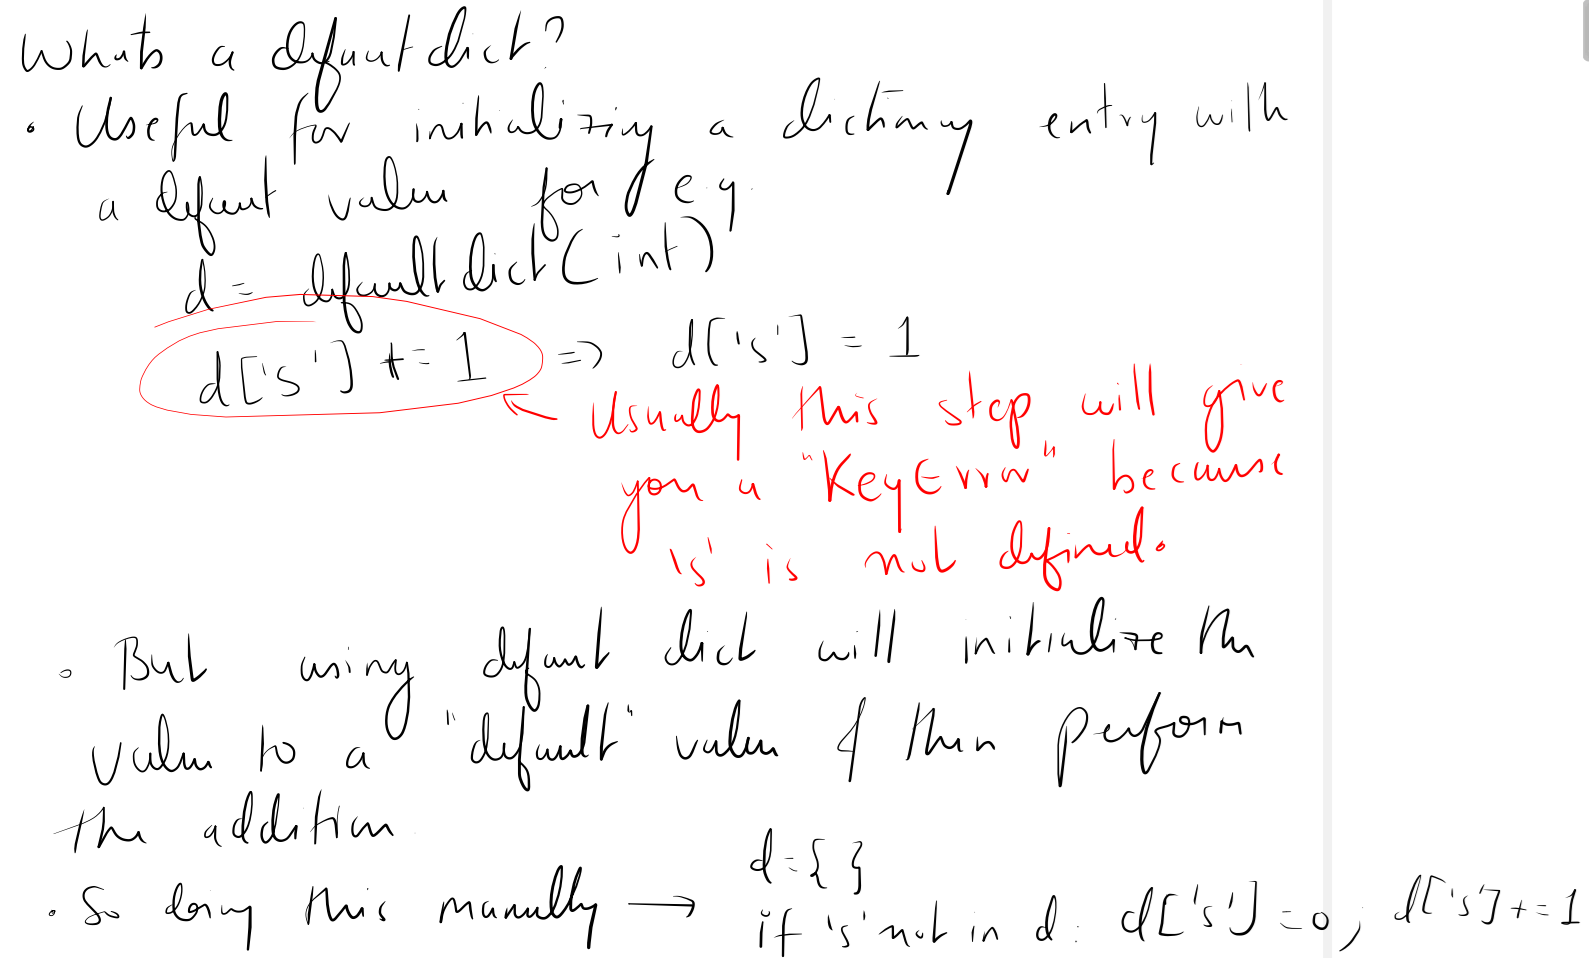 Whats a defaultdict?
• Useful for initializing a dictionary entry with
a default value for e.g.
d = defaultdict(int)
d['s'] += 1 => d['s'] = 1
← Usually this step will give
you a "KeyError" because
's' is not defined.
• But using default dict will initialize the
value to a "default" value & then perform
the addition
• So doing this manually → d={}
if 's' not in d: d['s']=0; d['s']+=1